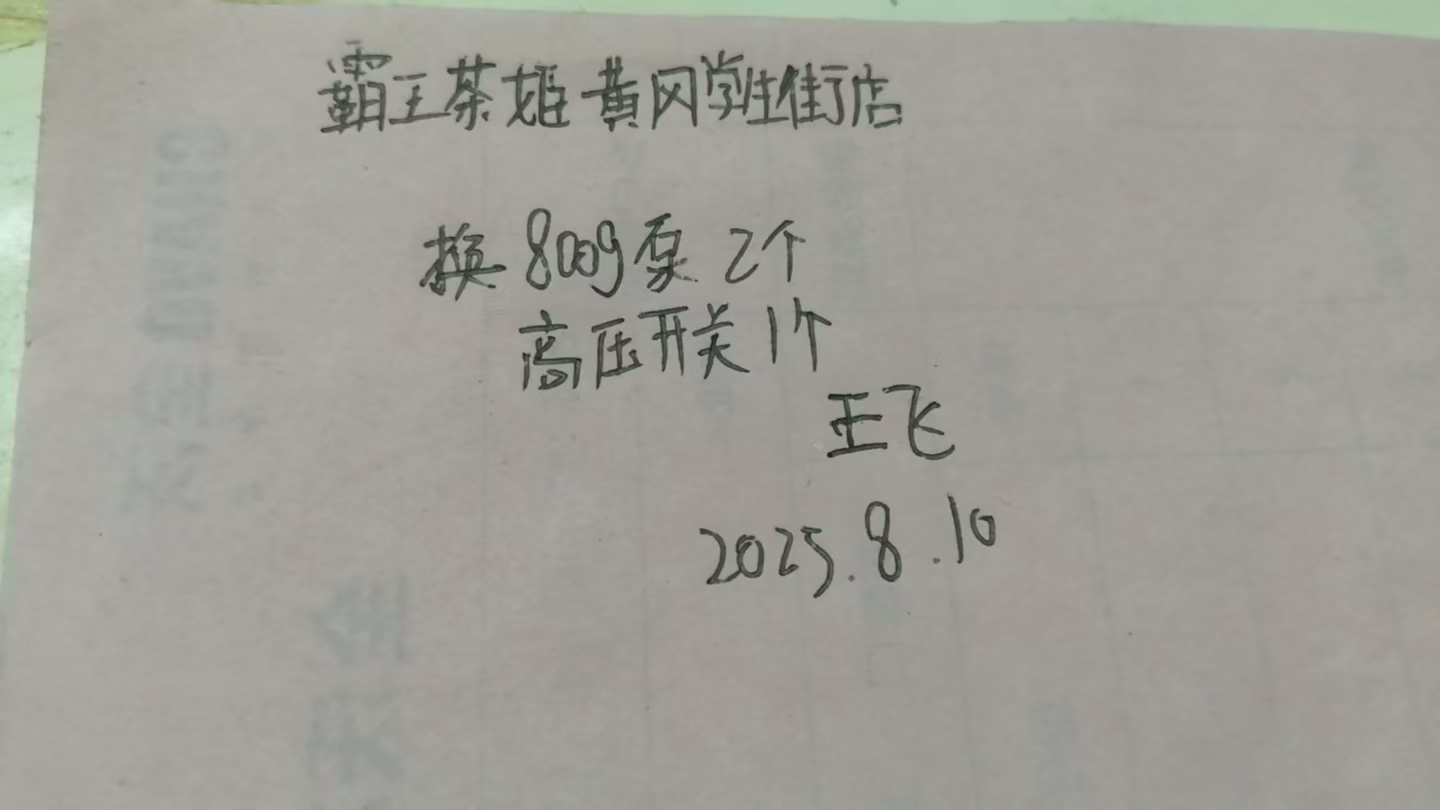 霸王茶姬黄冈学生街店
换800g泵 2个
高压开关1个
王飞
2025.8.10